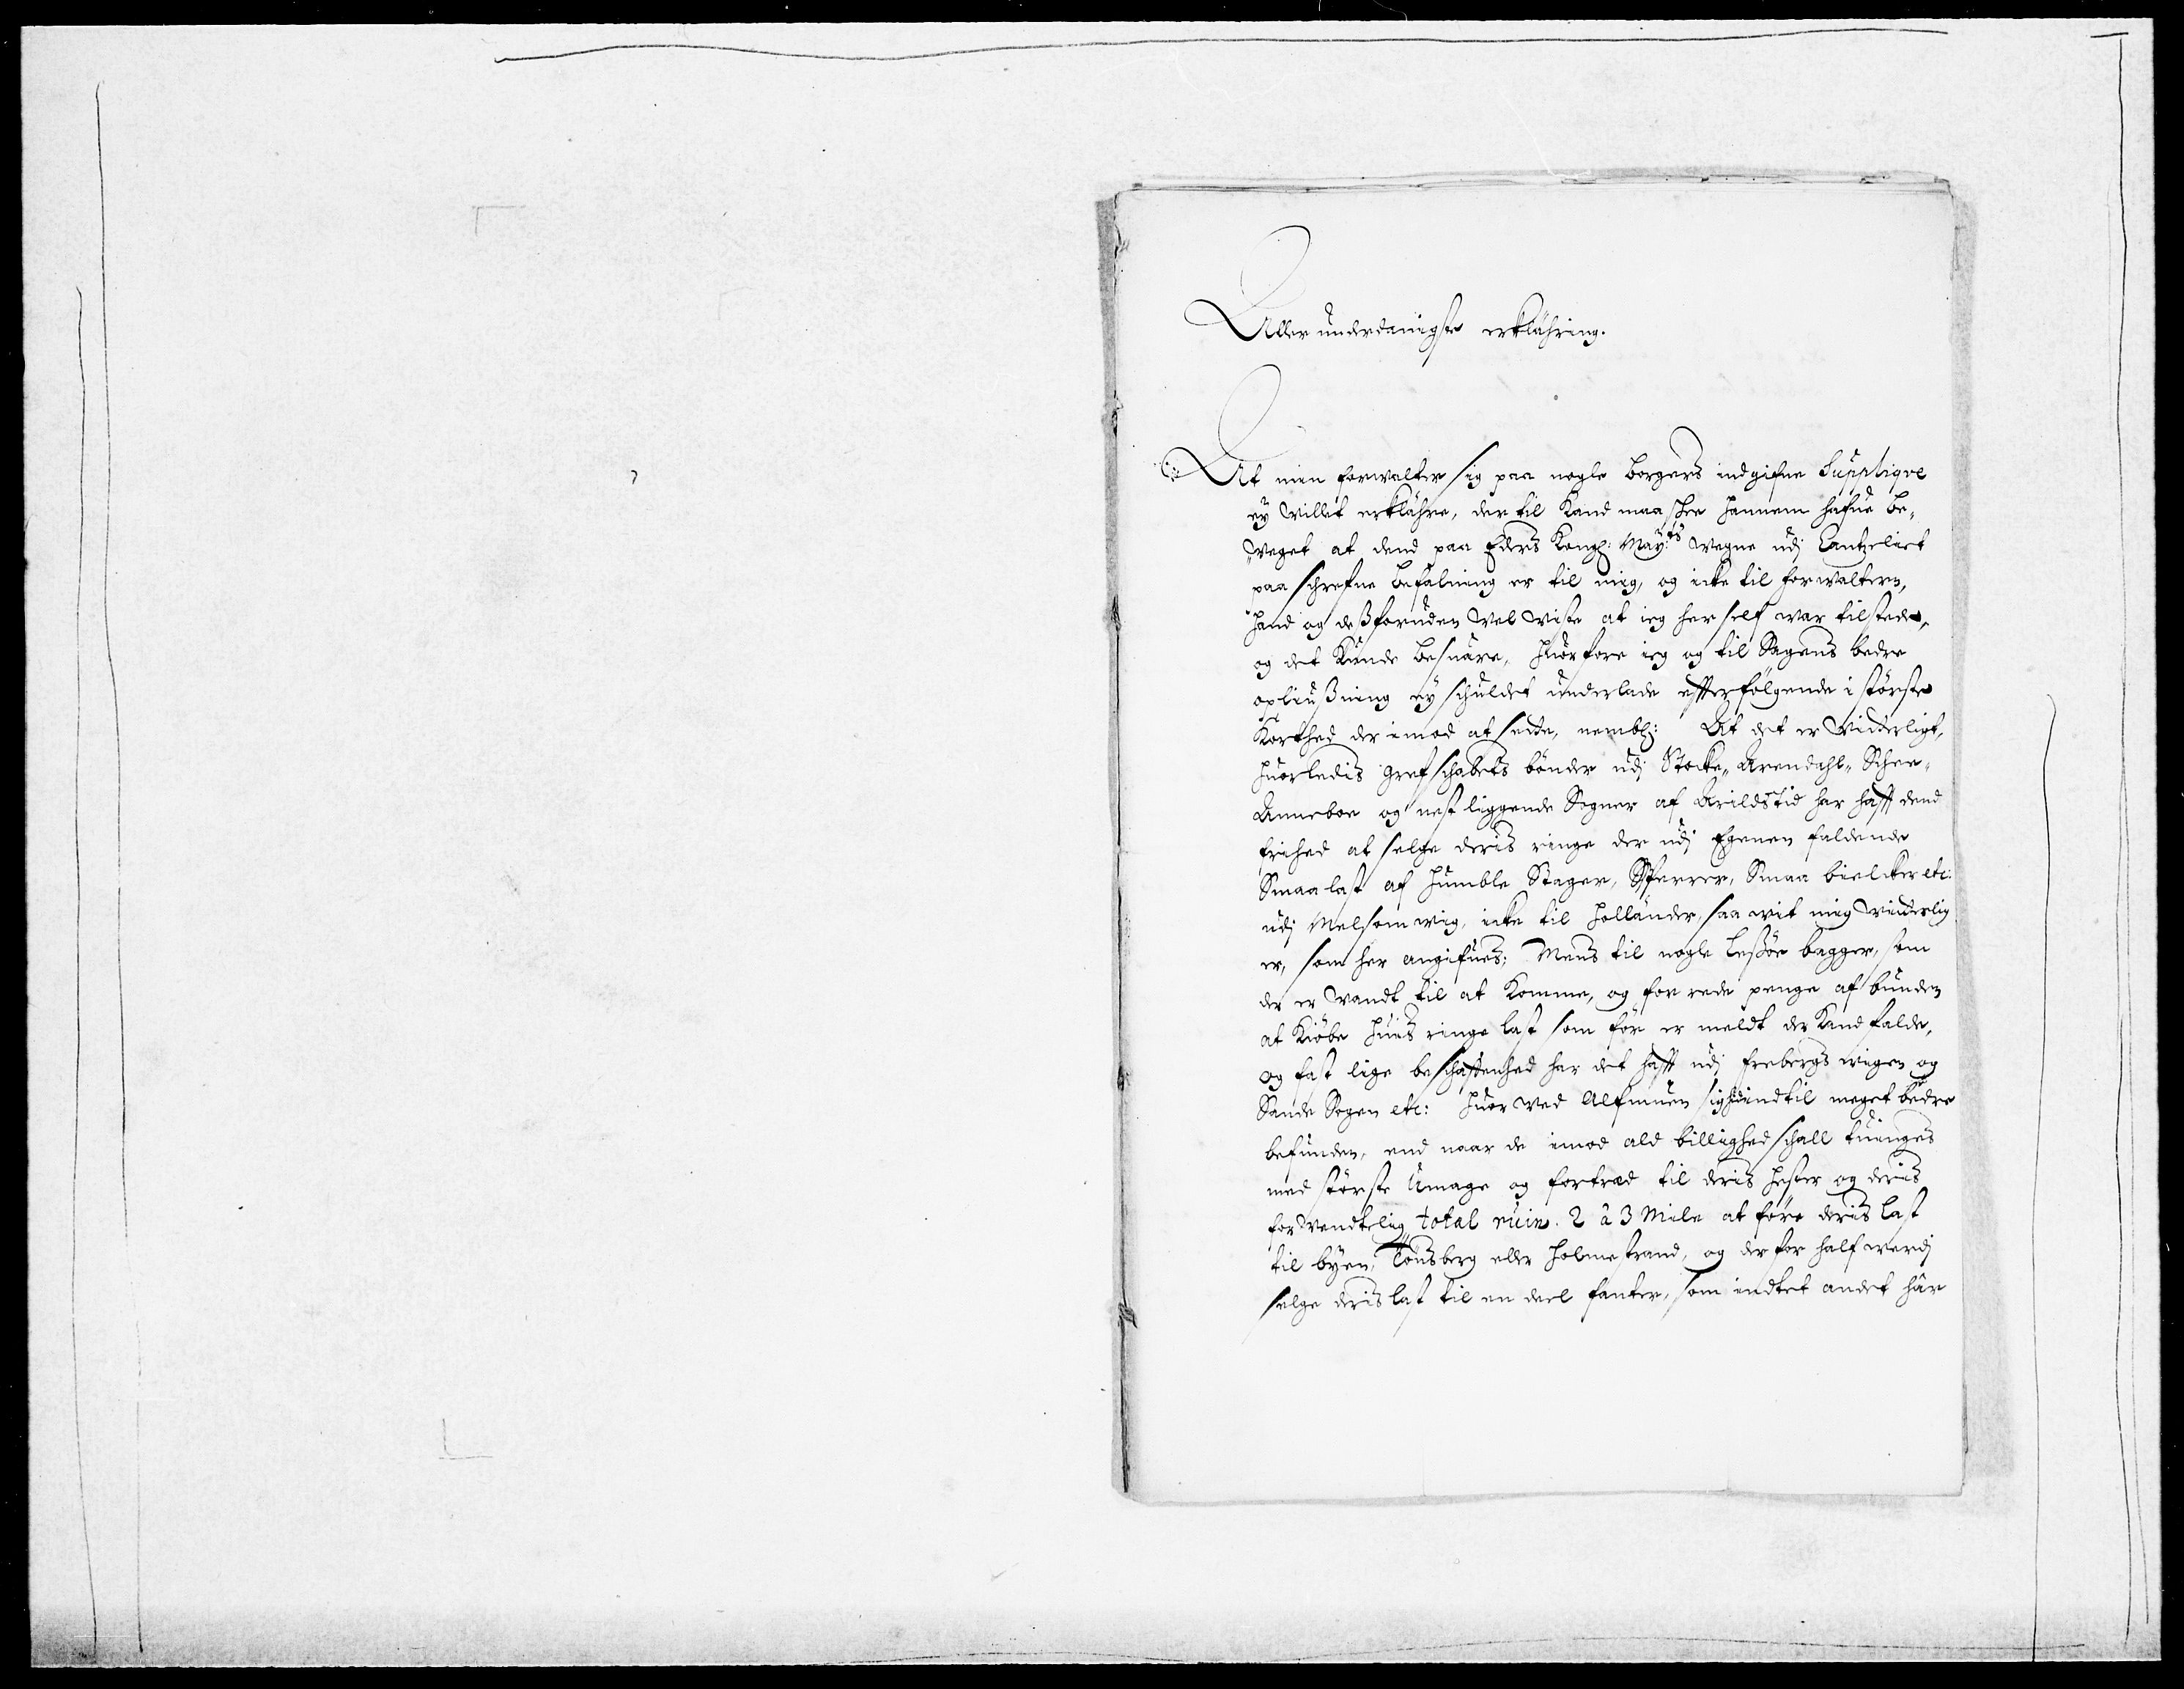 Aller underdanigste erklähring.
At min forwalter sig paa nogle borgers indgifne Supplique
ey villet erklähre, der til Kand maa schee hannem hafue be„
„veget at dend paa Eders Kongl: May:ts wegne udj Cantzeliet
paa schrefne befalning er til mig, og icke til forwalteren,
hand og deßforuden vel viste at ieg her self war tilstede,
og det Kunde besuare, huorfore ieg og til Sagens bedre
opliußning ey schuldet underlade efterfølgende i største
Korthed der imod at sette, nembl: At det er Vitterligt,
huorledis grefschabets bønder udj Stocke„ Arendahl„ Schee„
Anneboe og nest liggende Sogner af Arildstid har hafft dend
frihed at selge deris ringe der udj Egenen faldende
Smaa last af humble Stager, Sperrer, Smaa bielcker etc:
udj Melsomwig, icke til Holländer, saa wit mig vitterlig
er, som her angifues; Mens til nogle Leßøe bagger, som
der er Vandt til at Komme, og for rede penge af bunden
at Kiøbe huis ringe last som før er meldt der Kand falde,
og fast lige beschaffenhed har det hafft udj frebergs wigen og
Sande Sogen etc: huor ved Almuen sig hid indtil meget bedre
befunden, end naar de imod ald billighed schall tuinges
med største Umage og fortræd til deris hester og deris
forvendtelig total ruin. 2 â 3 Mile at føre deris last
til byen, Tønsberg eller Holmestrand, og der for half werdj
selge deris last til en deel fanter, som indtet andet här